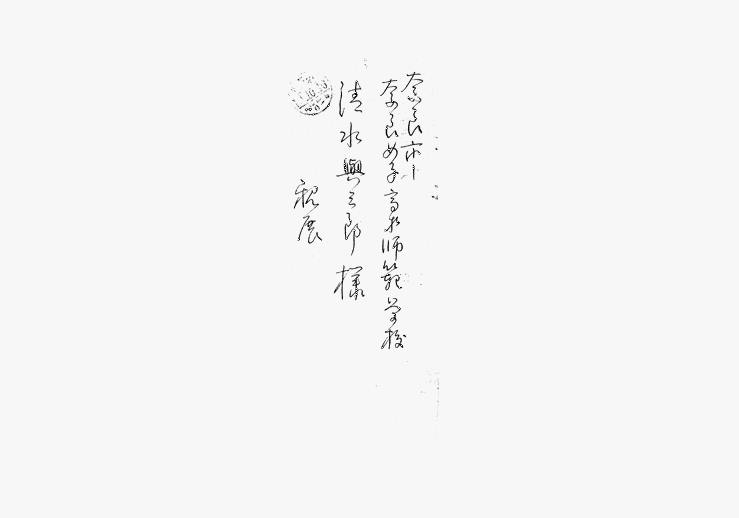 奈良市
奈良女子高等師範学校
清水與三郎様
親展